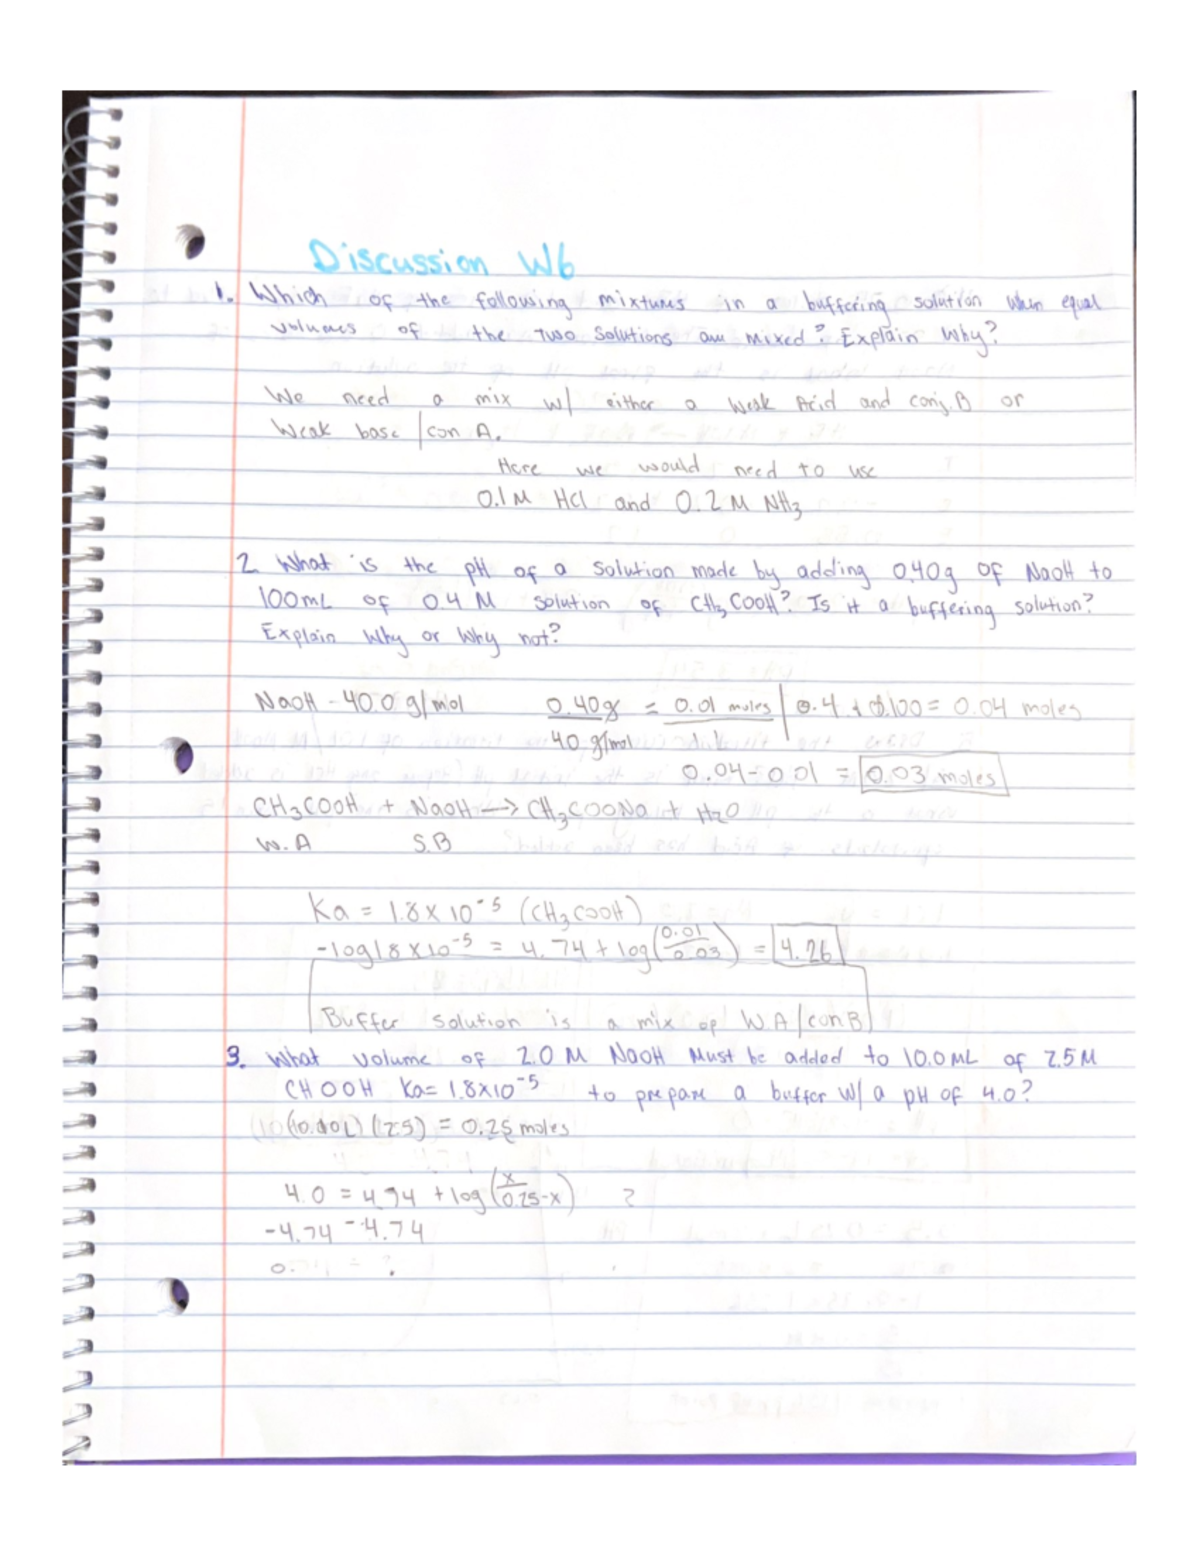 Discussion W6
1. Which of the following mixtures in a buffering solution when equal
volumes of the two solutions are mixed? Explain Why?
We need a mix w/ either a Weak Acid and conj. B or
Weak base /con A.
Here we would need to use
0.1M HCl and 0.2M NH3
2 What is the pH of a solution made by adding 0.40g of NaOH to
100mL of 0.4 M solution of CH3COOH? Is it a buffering solution?
Explain Why or Why not?
NaOH - 40.0 g/mol 0.40g = 0.01 moles | 0.4 x 0.100 = 0.04 moles
40 g/mol
0.04-0.01 = 0.03 moles
CH3COOH + NaOH → CH3COONa + H2O
W.A S.B
Ka = 1.8 x 10-5 (CH3COOH)
-log1.8 x10-5 = 4.74 + log(0.01/0.03) = 4.26
Buffer Solution is a mix of WA/conB
3. What volume of 2.0 M NaOH Must be added to 10.0mL of 2.5M
CHOOH Ka= 1.8x10-5 to prepare a buffer w/ a pH of 4.0?
(2.5) = 0.25 moles
4.0 = 4.74 + log(x/0.25-x) ?
-4.74 -4.74